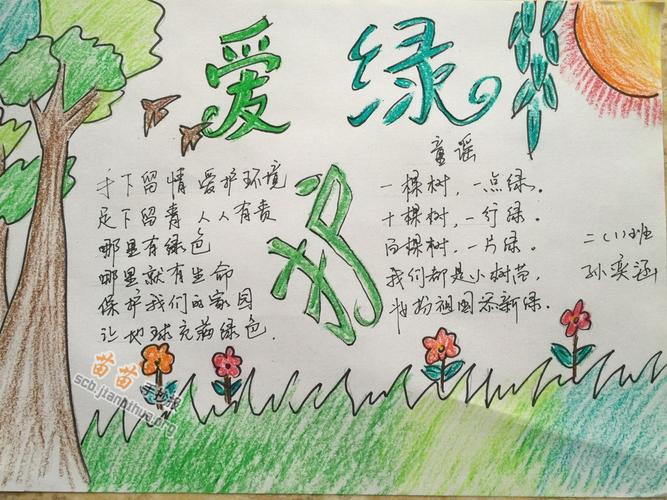 爱 绿
护
手下留情 爱护环境
足下留青 人人有责
哪里有绿色
哪里就有生命
保护我们的家园
让地球充满绿色.
童谣
一棵树,一点绿.
十棵树,一行绿.
百棵树,一片绿.
我们都是小树苗,
妆扮祖国添新绿.
二(1)班
孙奕涵
苗苗
手抄报
scb.jianhua.org